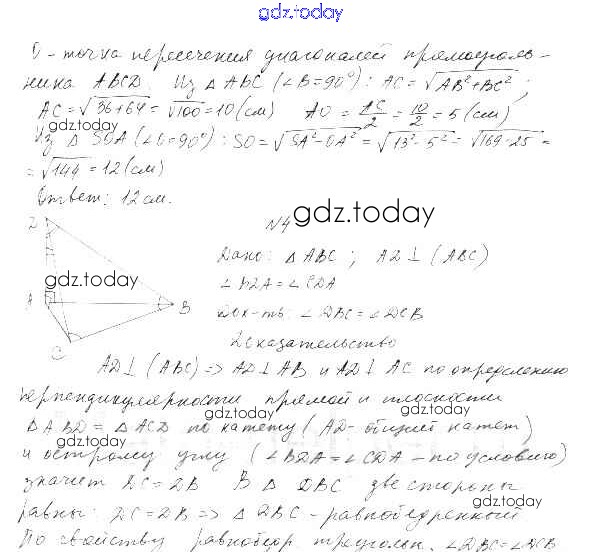 gdz.today
O - точка пересечения диагоналей прямоуголь-
ника ABCD. Из △ ABC (∠B=90°): AC = √AB²+BC² ;
AC = √36+64 = √100 = 10 (см) AO = AC/2 = 10/2 = 5 (см)
gdz.today
Из △ SOA (∠O=90°): SO = √SA²-OA² = √13²-5² = √169-25 =
= √144 = 12 (см)
Ответ: 12 см.
N4
gdz.today
D
Дано: △ ABC ; AD ⊥ (ABC)
gdz.today
∠BDA = ∠CDA
A
B
Док-ть: ∠DBC = ∠DCB
C
Доказательство
AD ⊥ (ABC) => AD ⊥ AB и AD ⊥ AC по определению
перпендикулярности прямой и плоскости
gdz.today
gdz.today
△ ABD = △ ACD по катету (AD - общий катет)
gdz.today
и острому углу (∠BDA = ∠CDA - по условию)
значит DC = DB В △ DBC две стороны
gdz.today
равны: DC = DB => △ DBC - равнобедренный
По свойству равнобедр. треугольн. ∠DBC = ∠DCB